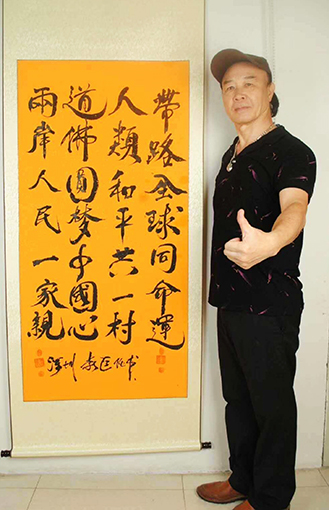 帶路全球同命運
人類和平共一村
道佛圓夢中國心
兩岸人民一家親